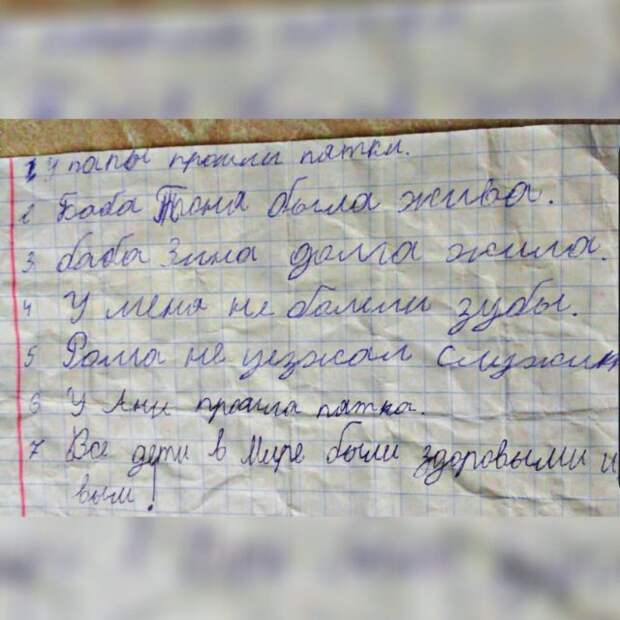 1 У папы прошли пятки.
2 Баба Тосня была жива.
3 баба Зина долга жила.
4 У меня не болели зубы.
5 Рома не уезжал служить
6 У Ани прошла пятка.
7 Все дети в Мире были здоровыми и
вым!